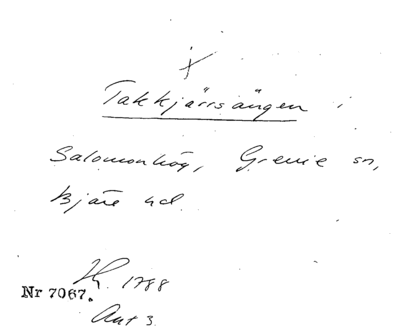 x
Takkjärrsängen i
Salomonhög, Grevie sn,
Bjäre hd.
1788
Nr 7067.
Akt 3.